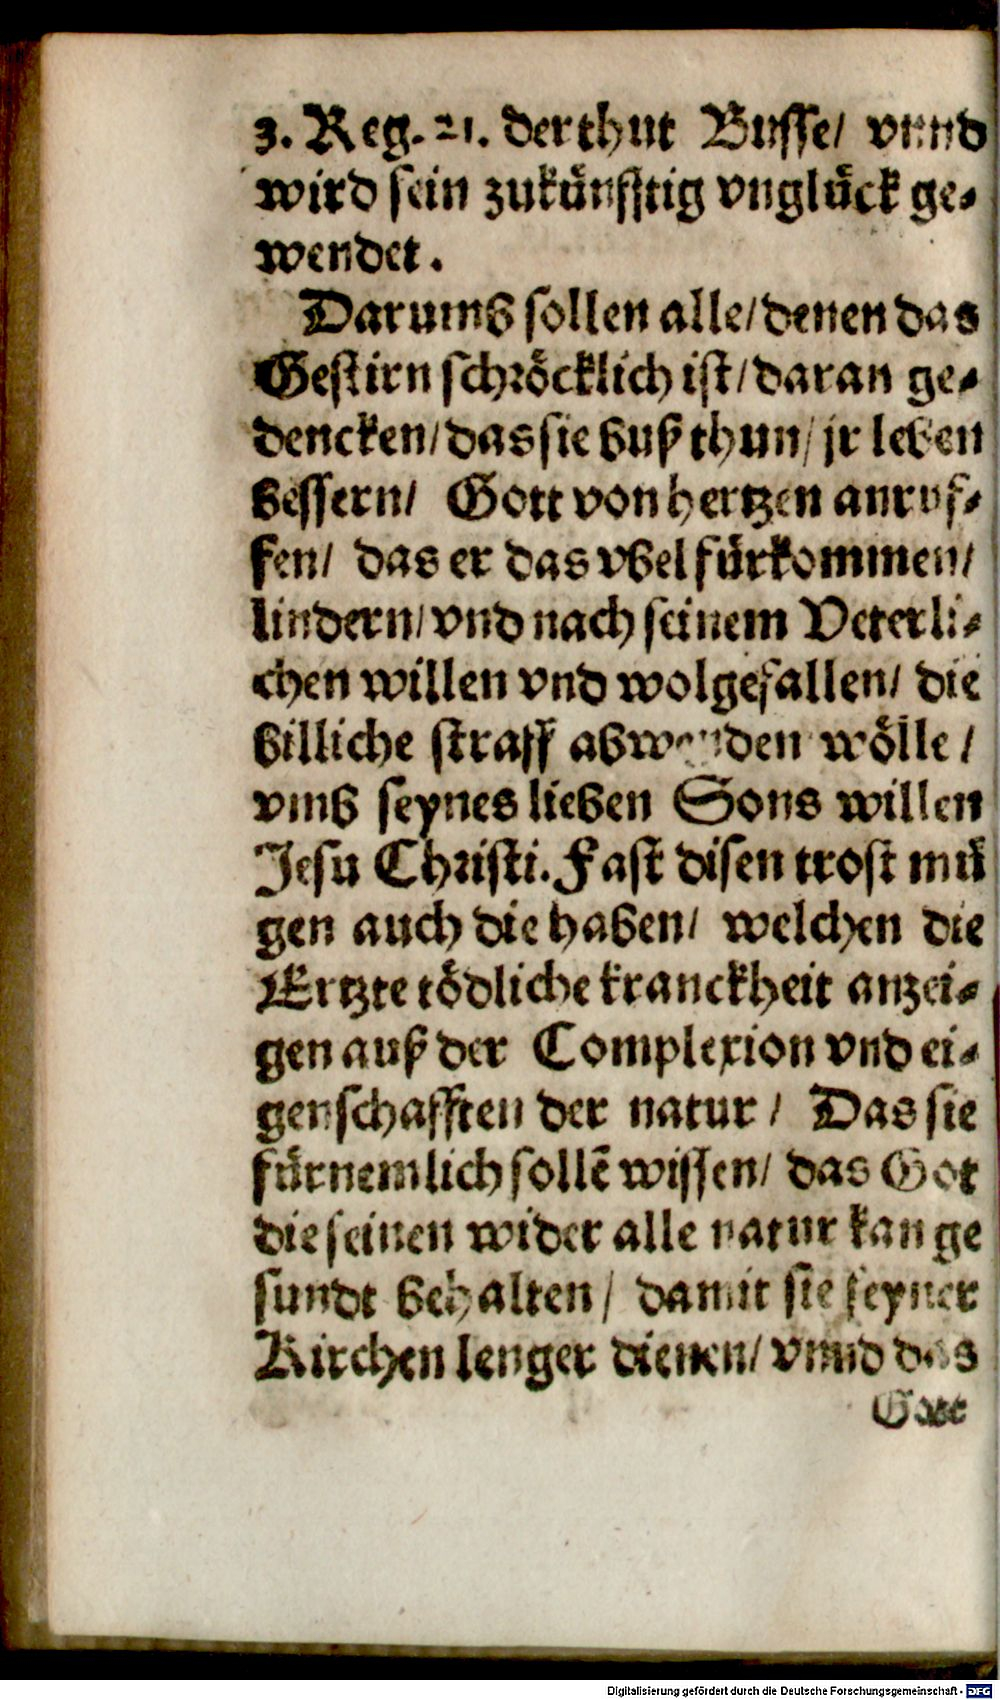 3. Reg. 21. der thut Busse/ vnnd
wird sein zukünfftig vnglück ge-
wendet.
Darumb sollen alle/ denen das
Gestirn schröcklich ist/ daran ge-
dencken/ das sie buß thun/ jr leben
bessern/ Gott von hertzen anruf-
fen/ das er das vbel fürkommen/
lindern/ vnd nach seinem Veterli-
chen willen vnd wolgefallen/ die
billiche straff abwenden wölle/
vmb seynes lieben Sons willen
Jesu Christi. Fast disen trost mü
gen auch die haben/ welchen die
Ertzte tödliche kranckheit anzei-
gen auß der Complexion vnd ei-
genschafften der natur/ Das sie
fürnemlich sollē wissen/ das Got
die seinen wider alle natur kan ge
sundt behalten/ damit sie seyner
Kirchen lenger dienen/ vnnd das
Gott
Digitalisierung gefördert durch die Deutsche Forschungsgemeinschaft - DFG